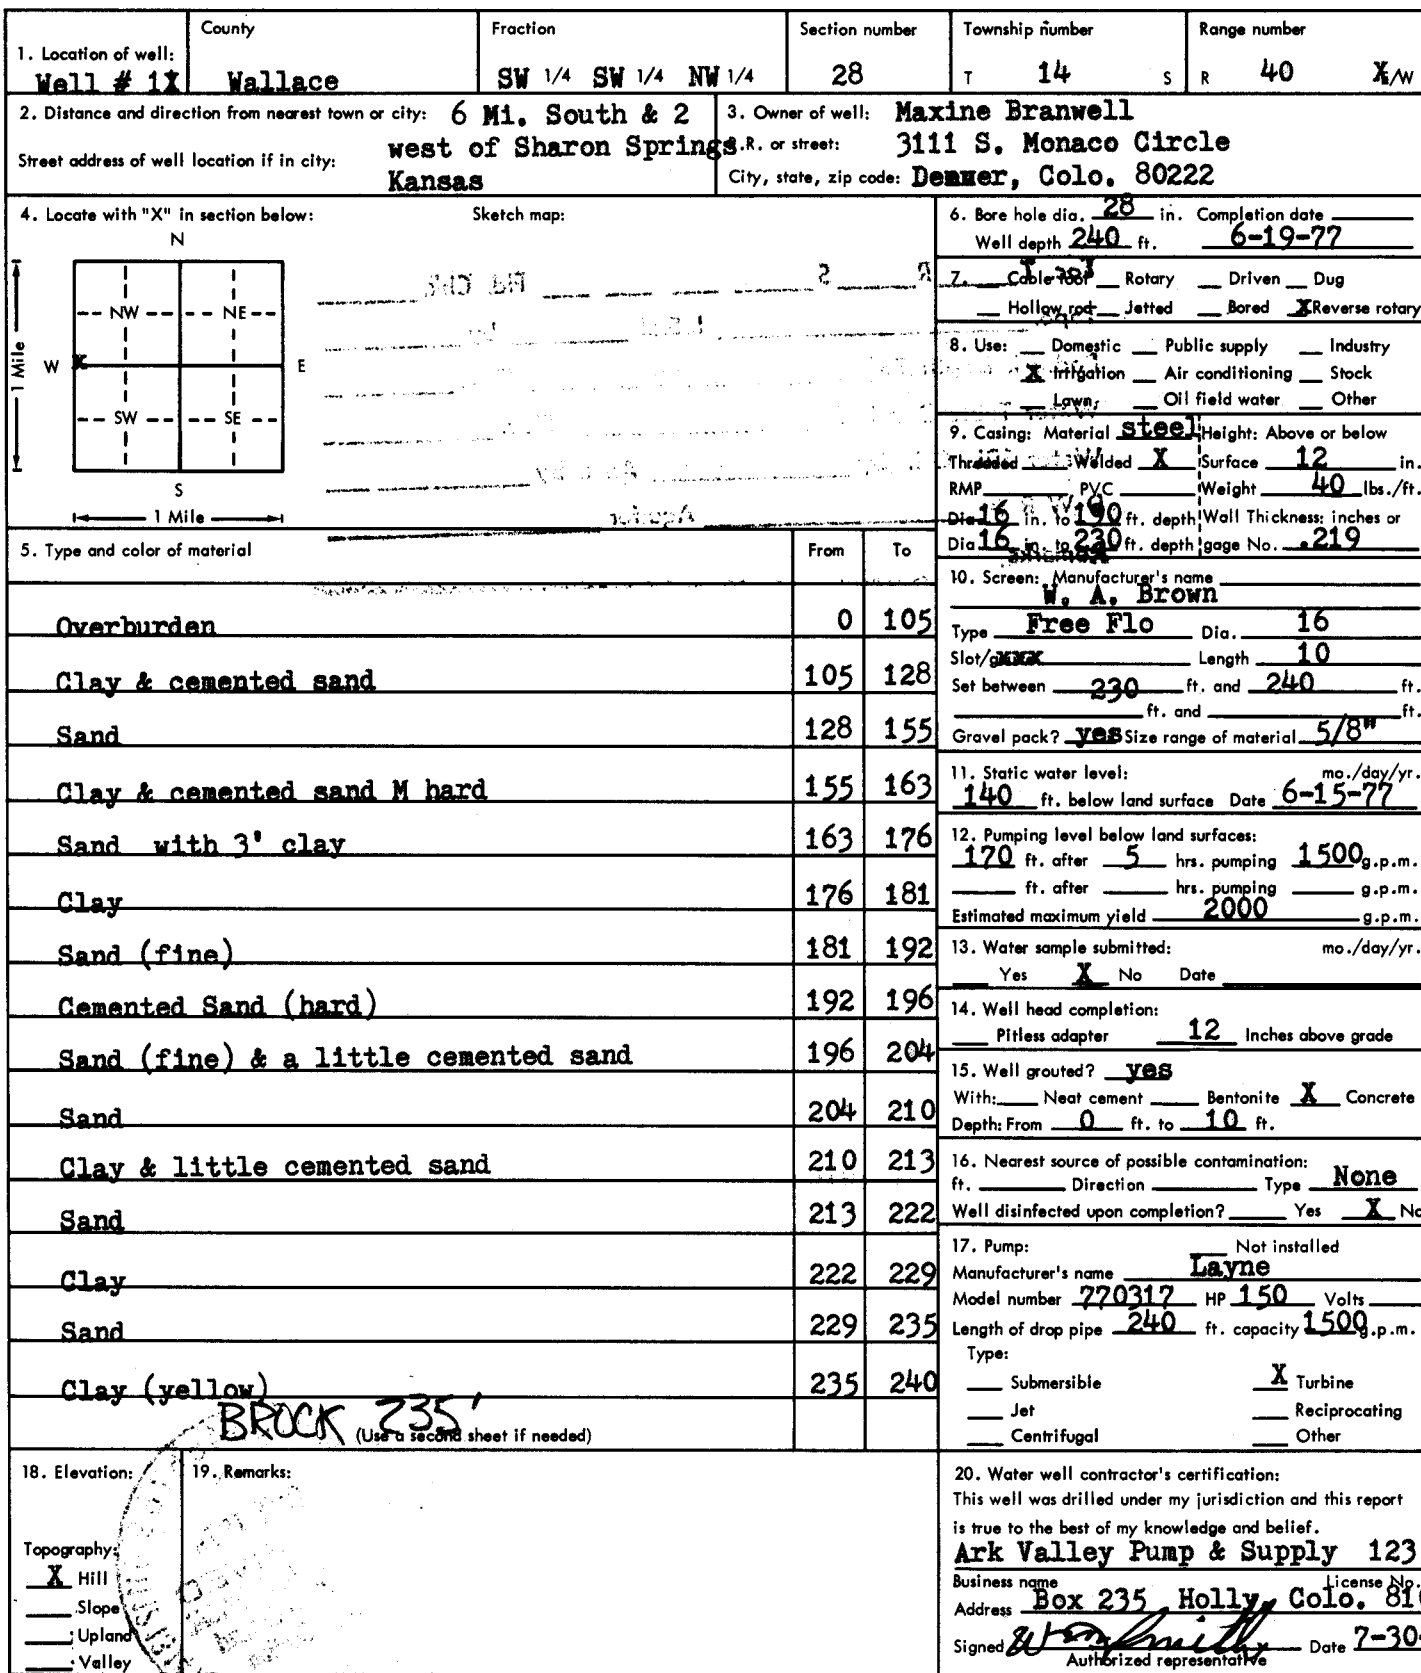 1. Location of well:
Well # 1X
County
Wallace
Fraction
SW 1/4 SW 1/4 NW 1/4
Section number
28
Township number
T 14 S
Range number
R 40 X/W
2. Distance and direction from nearest town or city: 6 Mi. South & 2
west of Sharon Springs
Street address of well location if in city:
Kansas
3. Owner of well: Maxine Branwell
R. or street: 3111 S. Monaco Circle
City, state, zip code: Denver, Colo. 80222
4. Locate with "X" in section below:
Sketch map:
N
NW NE
W X E
SW SE
S
1 Mile
1 Mile
5. Type and color of material From To
Overburden 0 105
Clay & cemented sand 105 128
Sand 128 155
Clay & cemented sand M hard 155 163
Sand with 3' clay 163 176
Clay 176 181
Sand (fine) 181 192
Cemented Sand (hard) 192 196
Sand (fine) & a little cemented sand 196 204
Sand 204 210
Clay & little cemented sand 210 213
Sand 213 222
Clay 222 229
Sand 229 235
Clay (yellow) 235 240
BROCK 235'
(Use a second sheet if needed)
6. Bore hole dia. 28 in. Completion date
Well depth 240 ft. 6-19-77
7. Cable tool Rotary Driven Dug
Hollow rod Jetted Bored X Reverse rotary
8. Use: Domestic Public supply Industry
X Irrigation Air conditioning Stock
Lawn Oil field water Other
9. Casing: Material steel Height: Above or below
Threaded Welded X Surface 12 in.
RMP PVC Weight 40 lbs./ft.
Dia 16 in. to 190 ft. depth Wall Thickness: inches or
Dia 16 in. to 230 ft. depth gage No. .219
10. Screen: Manufacturer's name
W. A. Brown
Type Free Flo Dia. 16
Slot/gxxxx Length 10
Set between 230 ft. and 240 ft.
ft. and ft.
Gravel pack? yes Size range of material 5/8"
11. Static water level: mo./day/yr.
140 ft. below land surface Date 6-15-77
12. Pumping level below land surfaces:
170 ft. after 5 hrs. pumping 1500 g.p.m.
ft. after hrs. pumping g.p.m.
Estimated maximum yield 2000 g.p.m.
13. Water sample submitted: mo./day/yr.
Yes X No Date
14. Well head completion:
Pitless adapter 12 Inches above grade
15. Well grouted? yes
With: Neat cement Bentonite X Concrete
Depth: From 0 ft. to 10 ft.
16. Nearest source of possible contamination:
ft. Direction Type None
Well disinfected upon completion? Yes X No
17. Pump: Not installed
Manufacturer's name Layne
Model number 770317 HP 150 Volts
Length of drop pipe 240 ft. capacity 1500 g.p.m.
Type:
Submersible X Turbine
Jet Reciprocating
Centrifugal Other
18. Elevation:
Topography:
X Hill
Slope
Upland
Valley
19. Remarks:
20. Water well contractor's certification:
This well was drilled under my jurisdiction and this report
is true to the best of my knowledge and belief.
Ark Valley Pump & Supply 123
Business name License No.
Address Box 235 Holly, Colo. 810
Signed Wm Smith Date 7-30-
Authorized representative